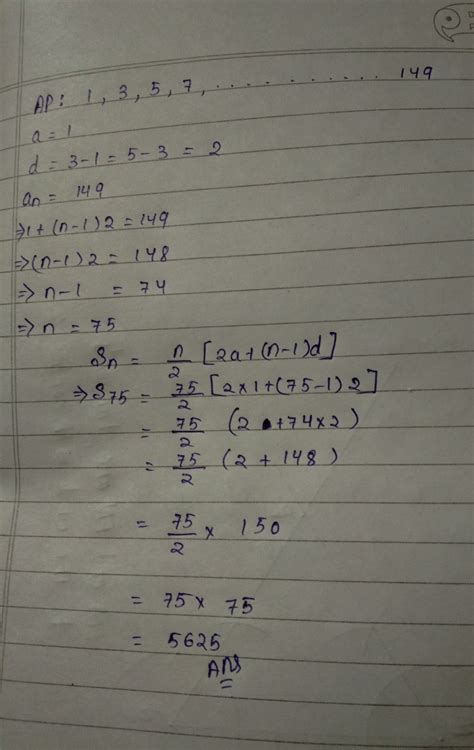 AP: 1, 3, 5, 7, ..................... 149
a = 1
d = 3-1 = 5-3 = 2
an = 149
⇒1+(n-1)2 = 149
⇒(n-1)2 = 148
⇒ n-1 = 74
⇒ n = 75
Sn = n/2 [2a+(n-1)d]
⇒ S75 = 75/2 [2×1+(75-1)2]
= 75/2 (2+74×2)
= 75/2 (2+148)
= 75/2 × 150
= 75× 75
= 5625
Ans